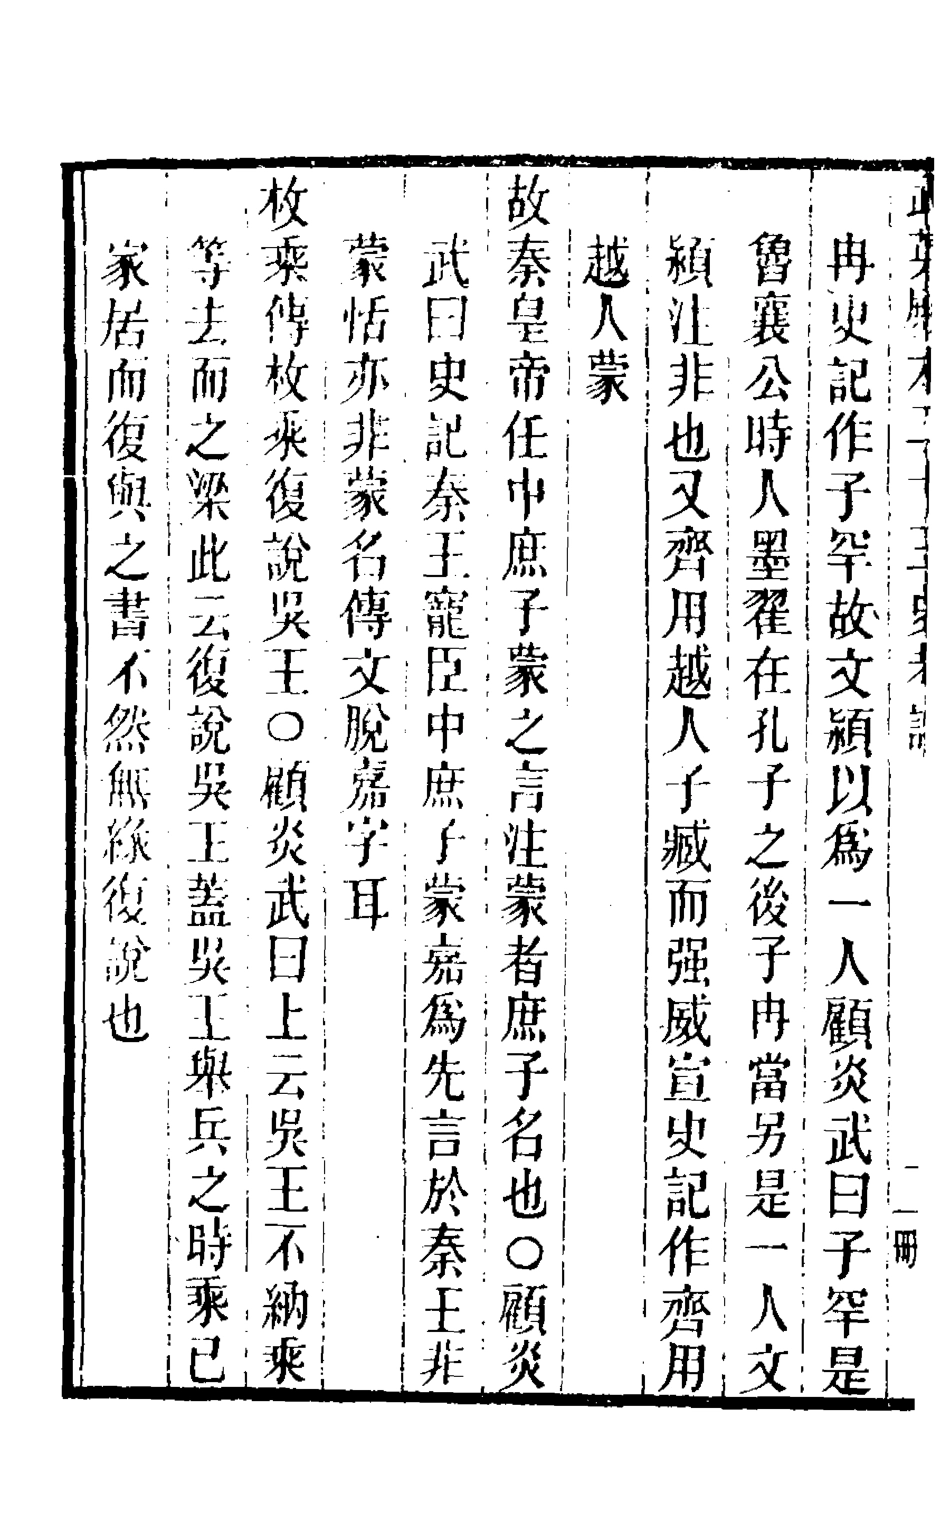 武英殿本二十三史考證
一冊
冉史記作子罕故文頴以爲一人顧炎武曰子罕是
魯襄公時人墨翟在孔子之後子冉當另是一人文
頴注非也又齊用越人子臧而强威宣史記作齊用
越人蒙
故秦皇帝任中庶子蒙之言注蒙者庶子名也○顧炎
武曰史記秦王寵臣中庶子蒙嘉爲先言於秦王非
蒙恬亦非蒙名傳文脫嘉字耳
枚乘傳枚乘復說吳王○顧炎武曰上云吳王不納乘
等去而之梁此云復說吳王蓋吳王舉兵之時乘已
家居而復與之書不然無緣復說也